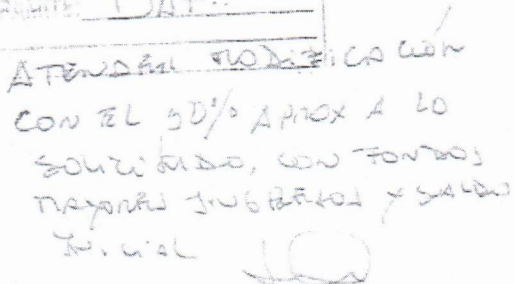 DAF.
ATENDER MODIFICACIÓN
CON EL 50% APROX A LO
SOLICITADO, CON FONDOS
MAYORES INGRESOS Y SALDO
INICIAL